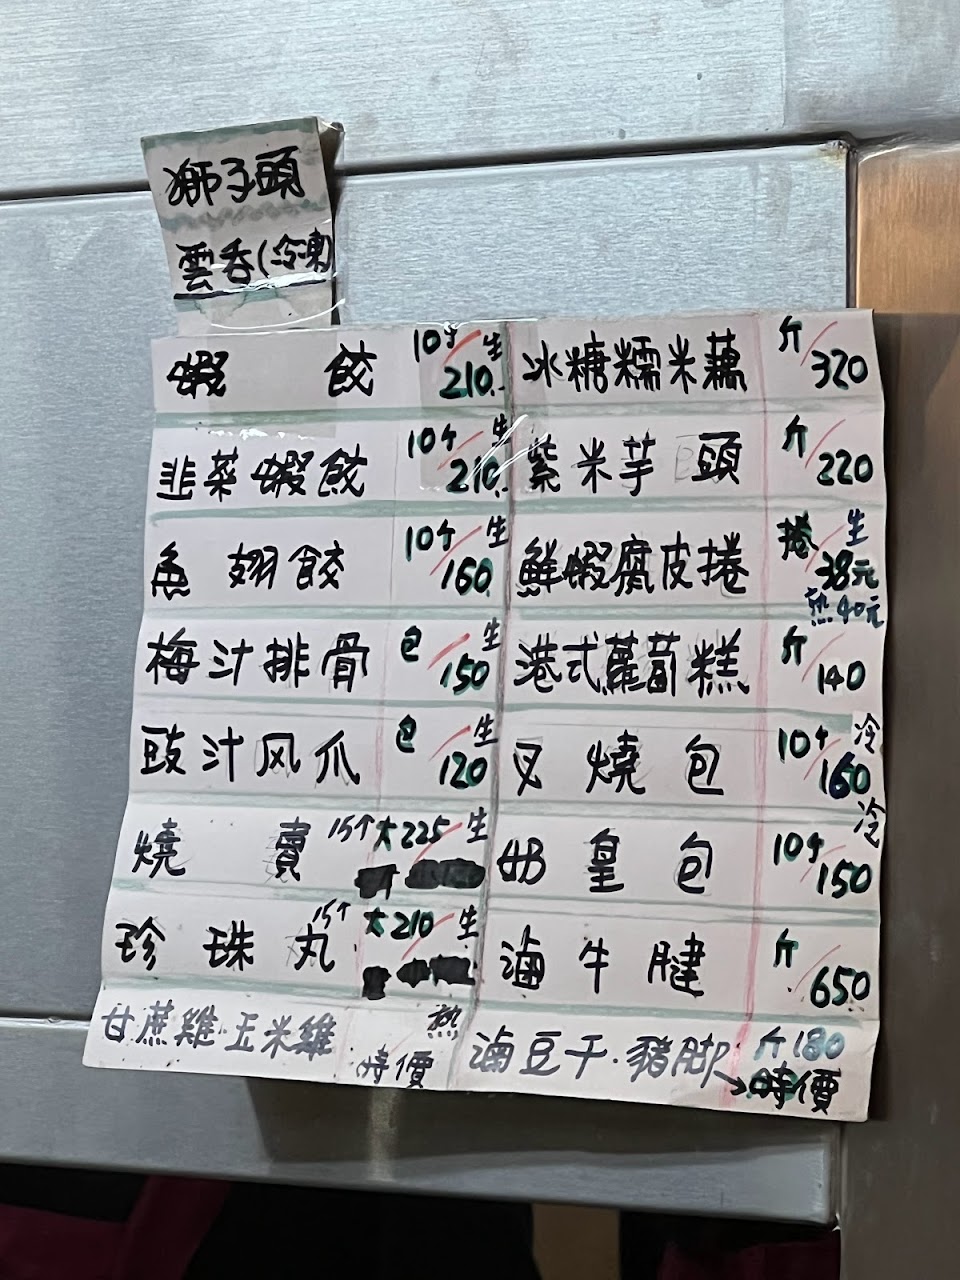 獅子頭
雲吞(冷凍)
蝦餃 10个/210 生
韭菜蝦餃 10个/210 生
魚翅餃 10个/160 生
梅汁排骨 包/150 生
豉汁风爪 包/120 生
燒賣 15个 大225 生
珍珠丸 15个 大210 生
甘蔗雞·玉米雞 熱 時價
冰糖糯米藕 斤/320
紫米芋頭 斤/220
鮮蝦腐皮捲 捲/生38元 熱40元
港式蘿蔔糕 斤/140
叉燒包 10个/160 冷
奶皇包 10个/150 冷
滷牛腱 斤/650
滷豆干·豬脚 斤180 →時價